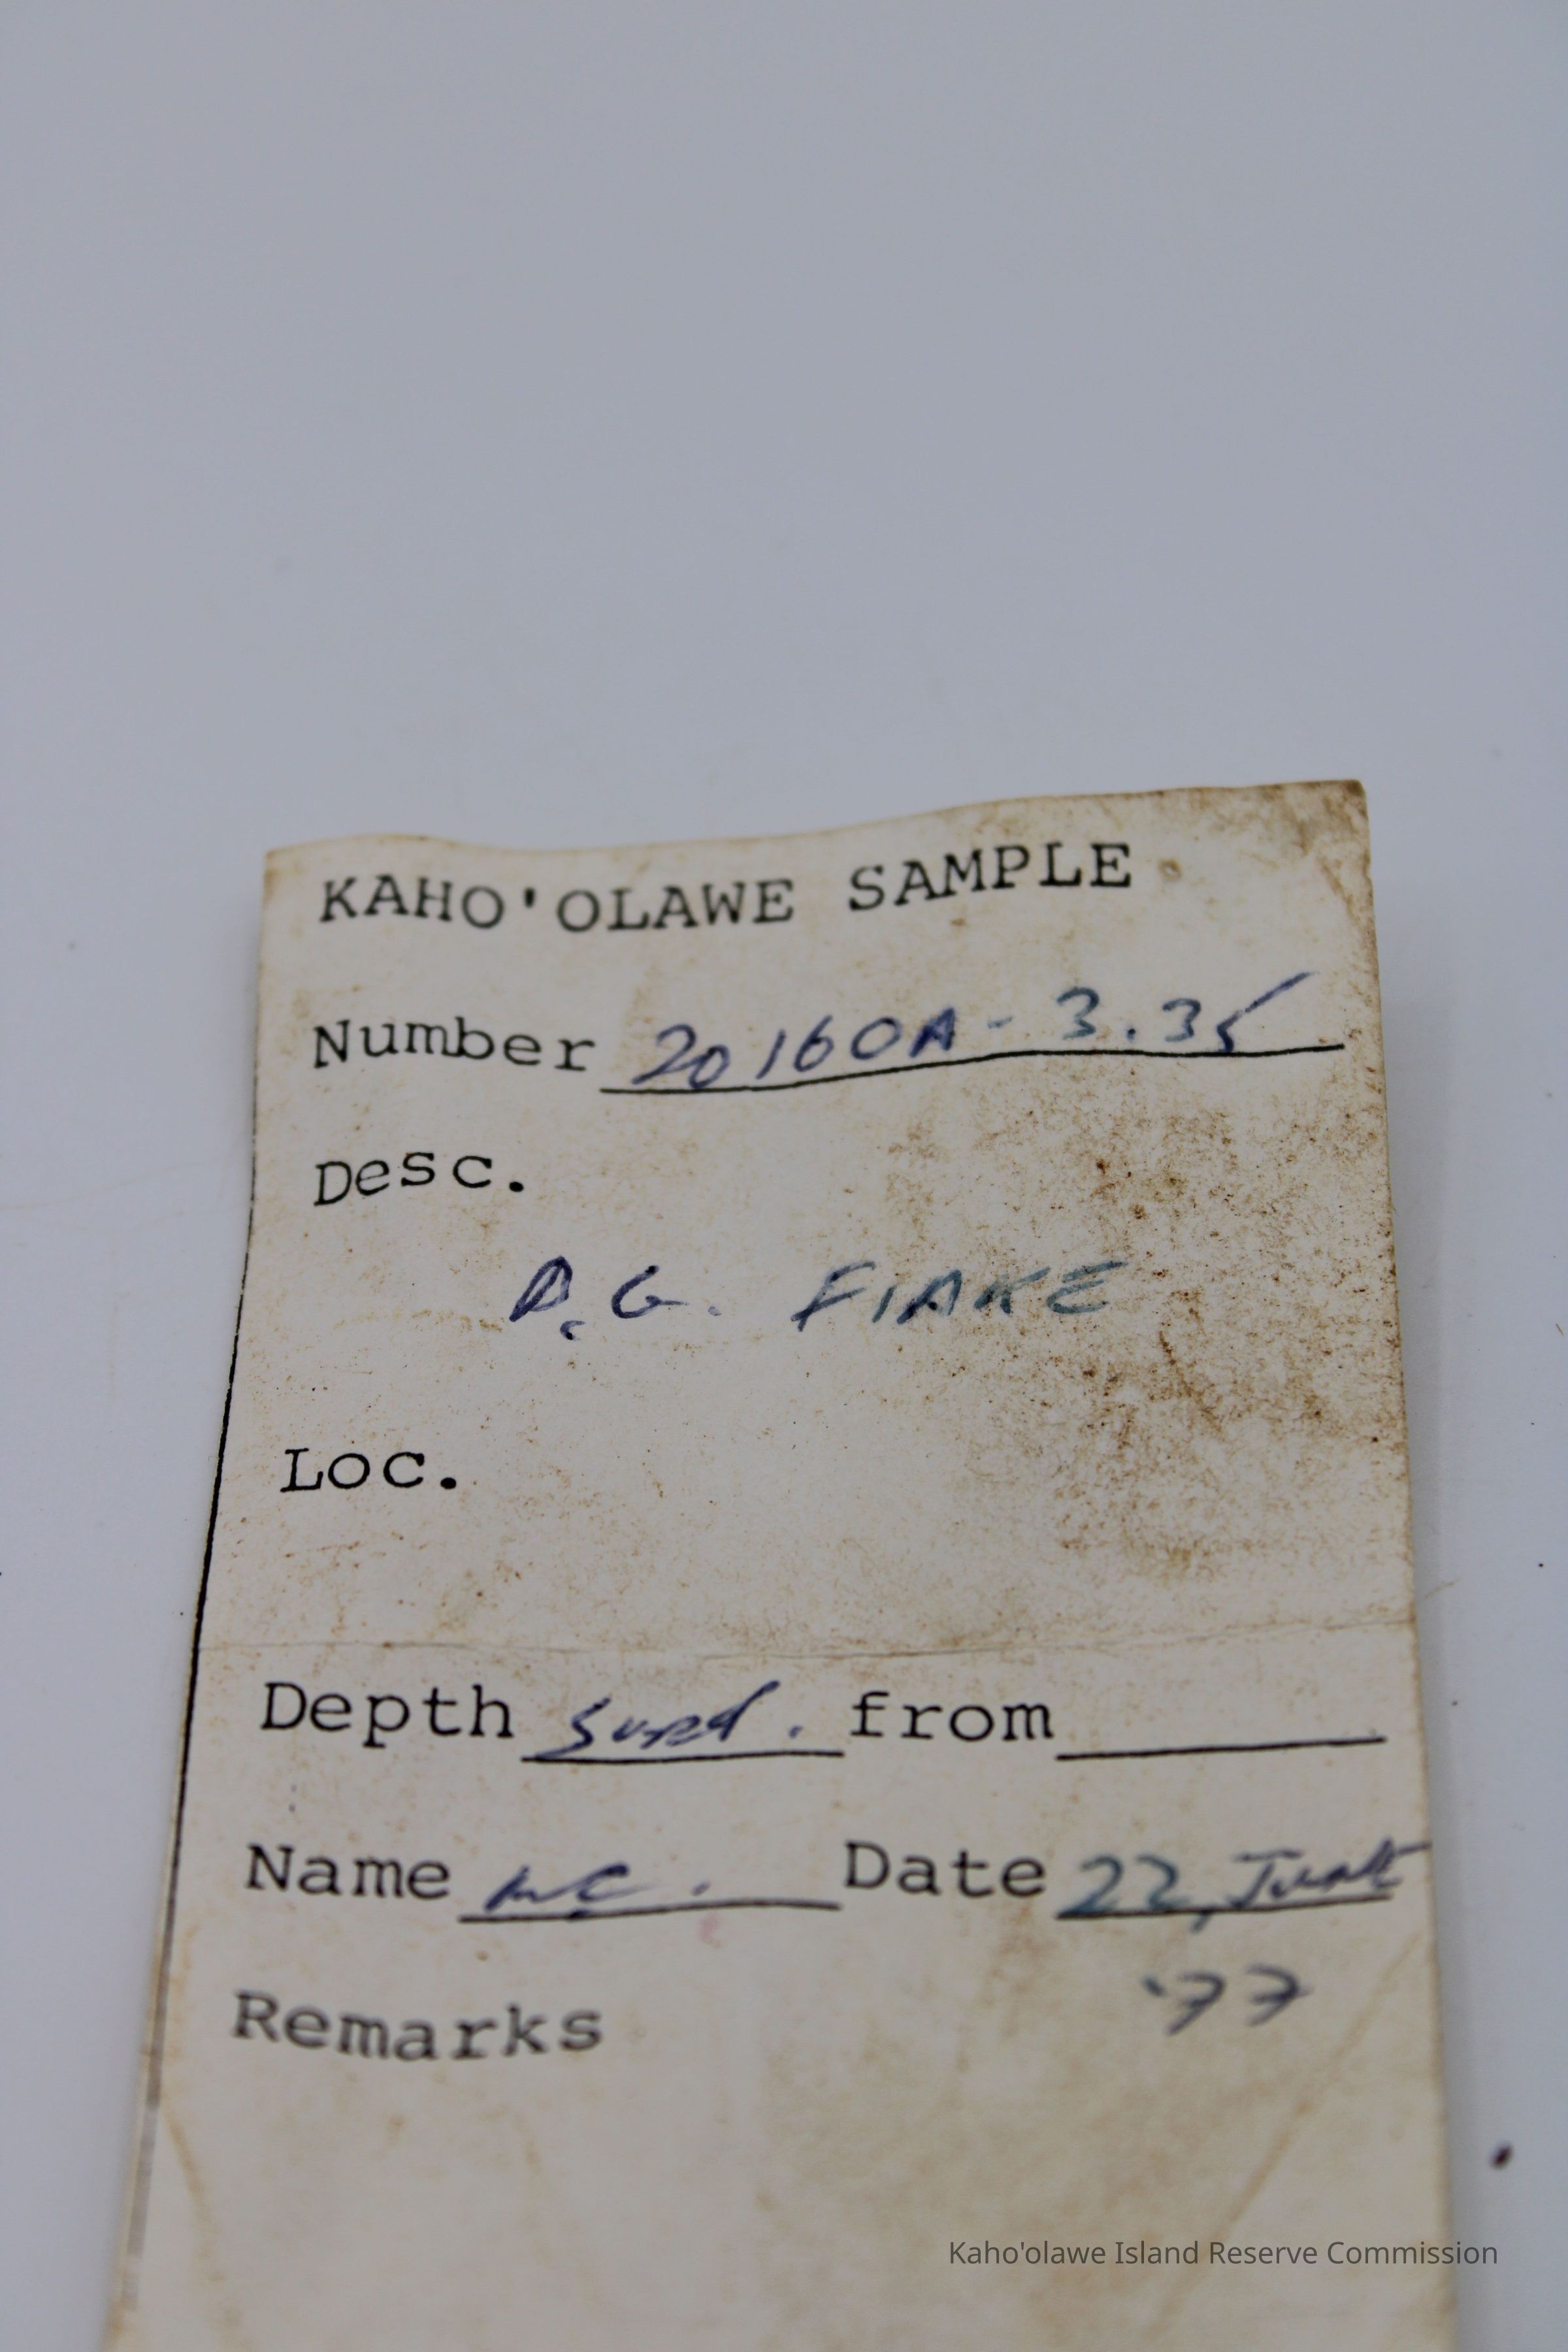 KAHO'OLAWE SAMPLE
Number 20160A-3.35
Desc.
B.G. FLAKE
Loc.
Depth Surf. from
Name Date 22, June
'77
Remarks
Kaho'olawe Island Reserve Commission